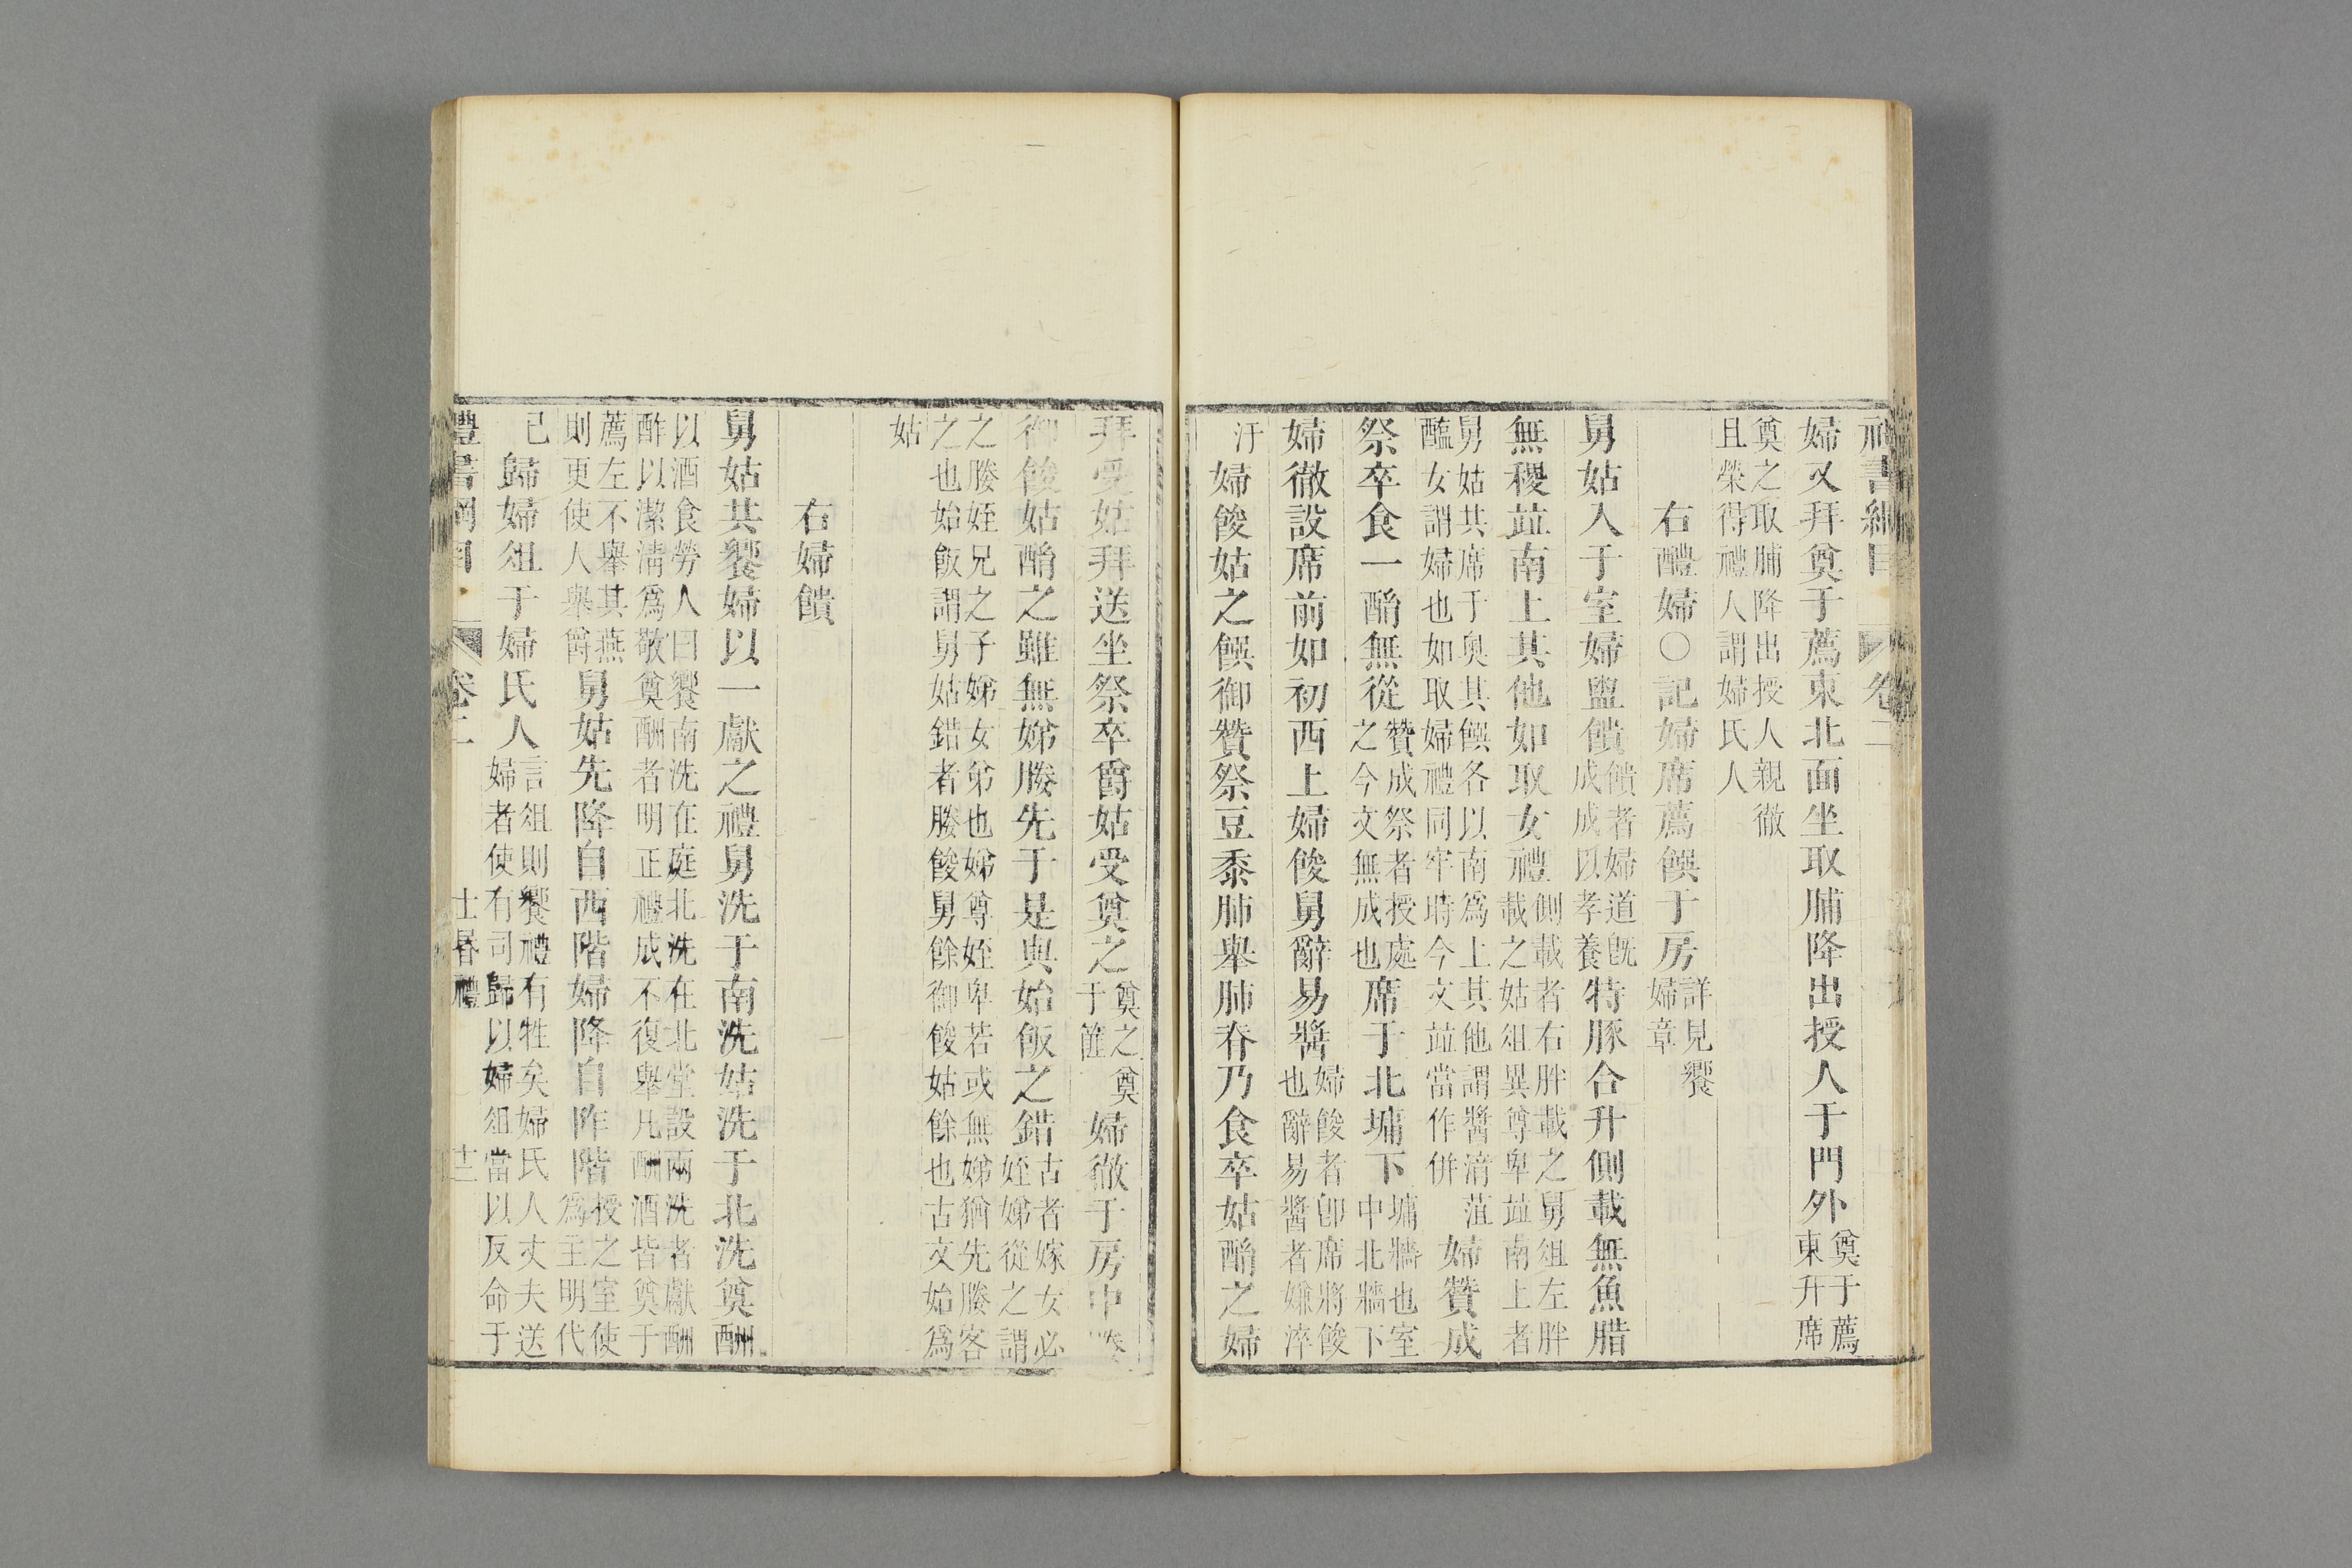 禮書綱目 卷二
婦又拜奠于薦東北面坐取脯降出授人于門外奠于薦東升席
奠之取脯降出授人親徹且榮得禮人謂婦氏人
右醴婦○記婦席薦饌于房詳見饗婦章
舅姑入于室婦盥饋饋者婦道旣成成以孝養特豚合升側載無魚腊
無稷竝南上其他如取女禮側載者右胖載之舅俎左胖載之姑俎異尊卑竝南上者
舅姑共席于奥其饌各以南爲上其他謂醬湆菹醢女謂婦也如取婦禮同牢時今文竝當作併婦贊成
祭卒食一酳無從贊成祭者授處之今文無成也席于北墉下墉牆也室中北牆下
婦徹設席前如初西上婦餕舅辭易醬婦餕者卽席將餕也辭易醬者嫌淬
汙婦餕姑之饌御贊祭豆黍肺舉肺脊乃食卒姑酳之婦
拜受姑拜送坐祭卒爵姑受奠之奠之奠于篚婦徹于房中媵
御餕姑酳之雖無娣媵先于是與始飯之錯古者嫁女必姪娣從之謂
之媵姪兄之子娣女弟也娣尊姪卑若或無娣猶先媵客之也始飯謂舅姑錯者媵餕舅餘御餕姑餘也古文始爲
姑
右婦饋
舅姑共饗婦以一獻之禮舅洗于南洗姑洗于北洗奠酬
以酒食勞人曰饗南洗在庭北洗在北堂設兩洗者獻酬酢以潔清爲敬奠酬者明正禮成不復舉凡酬酒皆奠于
薦左不舉其燕則更使人舉爵舅姑先降自西階婦降自阼階授之室使爲主明代
已歸婦俎于婦氏人言俎則饗禮有牲矣婦氏人丈夫送婦者使有司歸以婦俎當以反命于
禮書綱目 卷二 士昏禮 十二